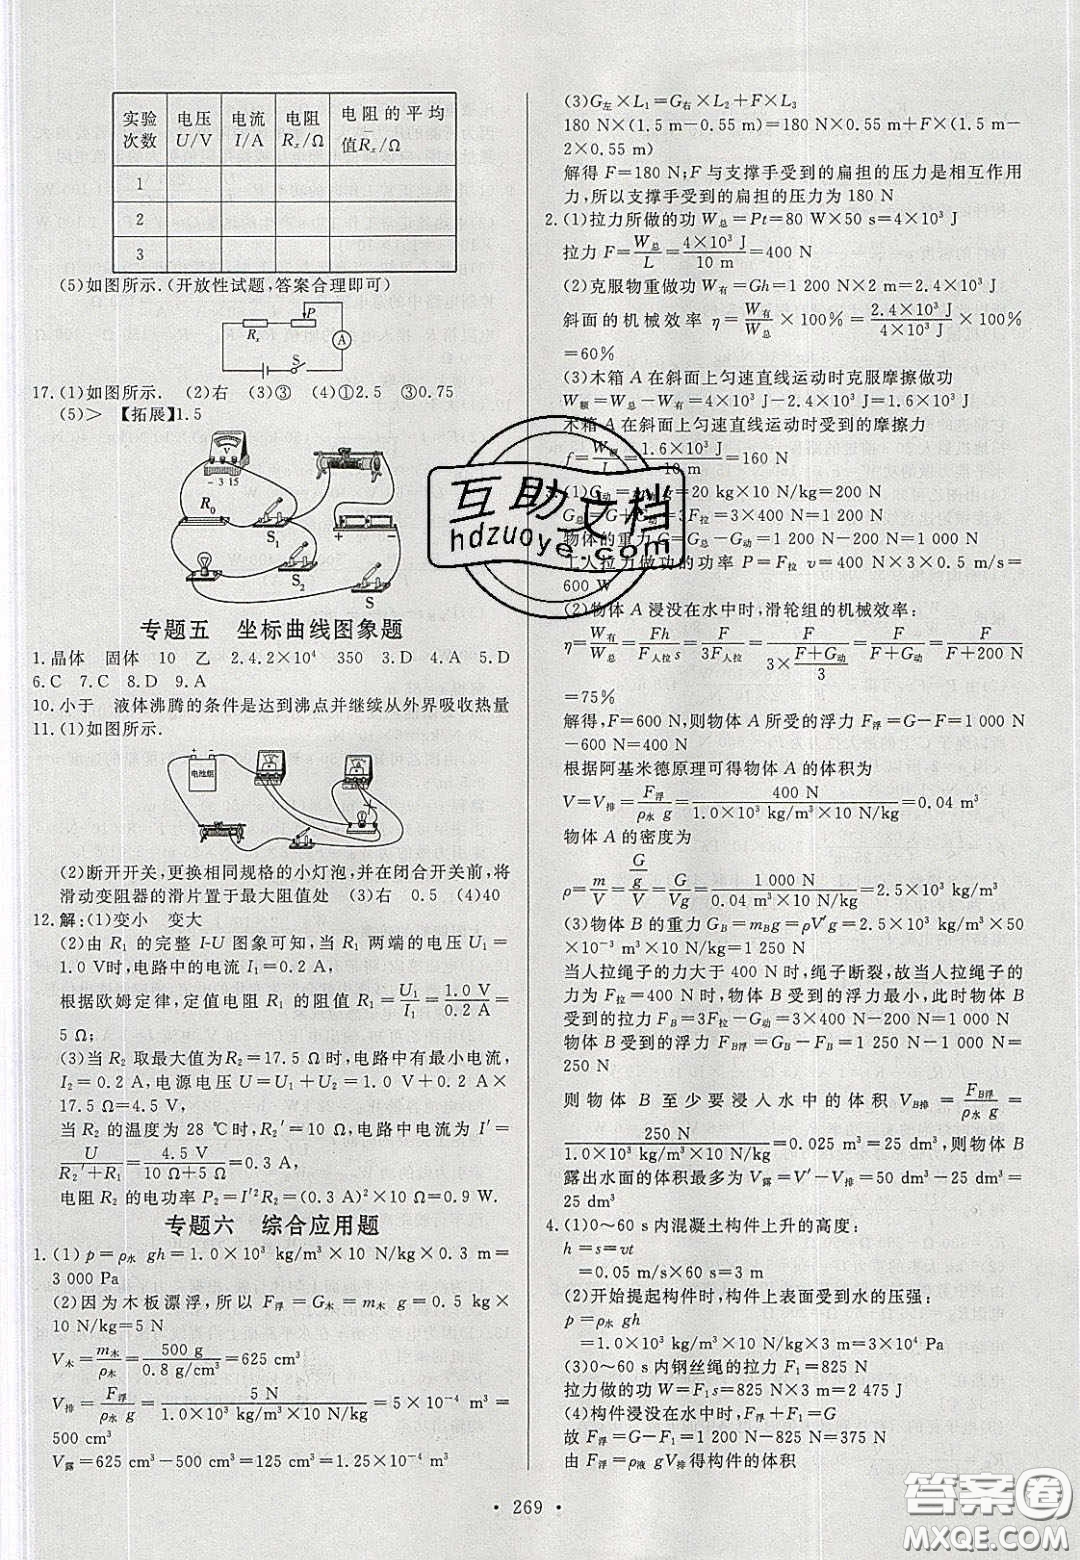 实验次数 电压U/V 电流I/A 电阻Rₓ/Ω 电阻的平均值Rₓ/Ω
1
2
3
(5)如图所示.(开放性试题,答案合理即可)
Rₓ P A S
17.(1)如图所示. (2)右 (3)③ (4)①2.5 ③0.75
(5)> 【拓展】1.5
V
- 3 15
R₀ S₁ + -
S₂ S
专题五 坐标曲线图象题
1.晶体 固体 10 乙 2.4.2×10⁴ 350 3.D 4.A 5.D
6.C 7.C 8.D 9.A
10.小于 液体沸腾的条件是达到沸点并继续从外界吸收热量
11.(1)如图所示.
电池组
(2)断开开关,更换相同规格的小灯泡,并在闭合开关前,将
滑动变阻器的滑片置于最大阻值处 (3)右 0.5 (4)40
12.解:(1)变小 变大
(2)由 R₁ 的完整 I-U 图象可知,当 R₁ 两端的电压 U₁=
1.0 V时,电路中的电流 I₁=0.2 A,
根据欧姆定律,定值电阻 R₁ 的阻值 R₁=U₁/I₁=1.0 V/0.2 A=
5 Ω;
(3)当 R₂ 取最大值为R₂=17.5 Ω时,电路中有最小电流,
I₂=0.2 A,电源电压 U=U₁+U₂=1.0 V+0.2 A×
17.5 Ω=4.5 V,
当 R₂ 的温度为 28 ℃时,R₂′=10 Ω,电路中电流 I′=
U/(R₂′+R₁)=4.5 V/(10 Ω+5 Ω)=0.3 A,
电阻 R₂ 的电功率 P₂=I′²R₂=(0.3 A)²×10 Ω=0.9 W.
专题六 综合应用题
1.(1)p=ρ水 gh=1.0×10³ kg/m³×10 N/kg×0.3 m=
3 000 Pa
(2)因为木板漂浮,所以 F浮=G木=m木 g=0.5 kg
×10 N/kg=5 N
V木=m木/ρ木=500 g/0.8 g/cm³=625 cm³
V排=F浮/ρ水 g=5 N/(1.0×10³ kg/m³×10 N/kg)=5×10⁻⁴ m³=
500 cm³
V露=625 cm³-500 cm³=125 cm³=1.25×10⁻⁴ m³
(3)G左×L₁=G右×L₂+F×L₃
180 N×(1.5 m-0.55 m)=180 N×0.55 m+F×(1.5 m-
2×0.55 m)
解得 F=180 N;F与支撑手受到的扁担的压力是相互作用
力,所以支撑手受到的扁担的压力为 180 N
2.(1)拉力所做的功 W总=Pt=80 W×50 s=4×10³ J
拉力 F=W总/L=4×10³ J/10 m=400 N
(2)克服物重做功 W有=Gh=1 200 N×2 m=2.4×10³ J
斜面的机械效率 η=W有/W总×100%=2.4×10³ J/4×10³ J×100%
=60%
(3)木箱 A 在斜面上匀速直线运动时克服摩擦做功
W额=W总-W有=4×10³ J-2.4×10³ J=1.6×10³ J
木箱 A 在斜面上匀速直线运动时受到的摩擦力
f=W额/L=1.6×10³ J/10 m=160 N
(1)G动=m动g=20 kg×10 N/kg=200 N
G总=G+G动=3F拉=3×400 N=1 200 N
物体的重力 G=G总-G动=1 200 N-200 N=1 000 N
工人拉力做功的功率 P=F拉 v=400 N×3×0.5 m/s=
600 W
(2)物体 A 浸没在水中时,滑轮组的机械效率:
η=W有/W总=Fh/F人拉s=F/3F人拉=F/(3×(F+G动)/3)=F/(F+G动)=F/(F+200 N)
=75%
解得,F=600 N,则物体 A 所受的浮力 F浮=G-F=1 000 N
-600 N=400 N
根据阿基米德原理可得物体 A 的体积为
V=V排=F浮/ρ水 g=400 N/(1.0×10³ kg/m³×10 N/kg)=0.04 m³
物体 A 的密度为
ρ=m/V=(G/g)/V=G/Vg=1 000 N/(0.04 m³×10 N/kg)=2.5×10³ kg/m³
(3)物体 B 的重力 G_B=m_Bg=ρV′g=2.5×10³ kg/m³×50
×10⁻³ m³×10 N/kg=1 250 N
当人拉绳子的力大于 400 N时,绳子断裂,故当人拉绳子的
力为 F拉=400 N 时,物体 B 受到的浮力最小,此时物体 B
受到的拉力 F_B=3F拉-G动=3×400 N-200 N=1 000 N
物体 B 受到的浮力 F_B浮=G_B-F_B=1 250 N-1 000 N=
250 N
则物体 B 至少要浸入水中的体积 V_B排=F_B浮/ρ水 g=
250 N/(1.0×10³ kg/m³×10 N/kg)=0.025 m³=25 dm³,则物体 B
露出水面的体积最多为 V露=V′-V排=50 dm³-25 dm³=
25 dm³
4.(1)0~60 s内混凝土构件上升的高度:
h=s=vt
=0.05 m/s×60 s=3 m
(2)开始提起构件时,构件上表面受到水的压强:
p=ρ水 gh
=1.0×10³ kg/m³×10 N/kg×3 m=3×10⁴ Pa
(3)0~60 s 内钢丝绳的拉力 F₁=825 N
拉力做的功 W=F₁s=825 N×3 m=2 475 J
(4)构件浸没在水中时,F浮+F₁=G
故 F浮=G-F₁=1 200 N-825 N=375 N
由 F浮=ρ液 gV排得构件的体积
· 269 ·
互助文档
hdzuoye.com
答案圈
MXQE.COM